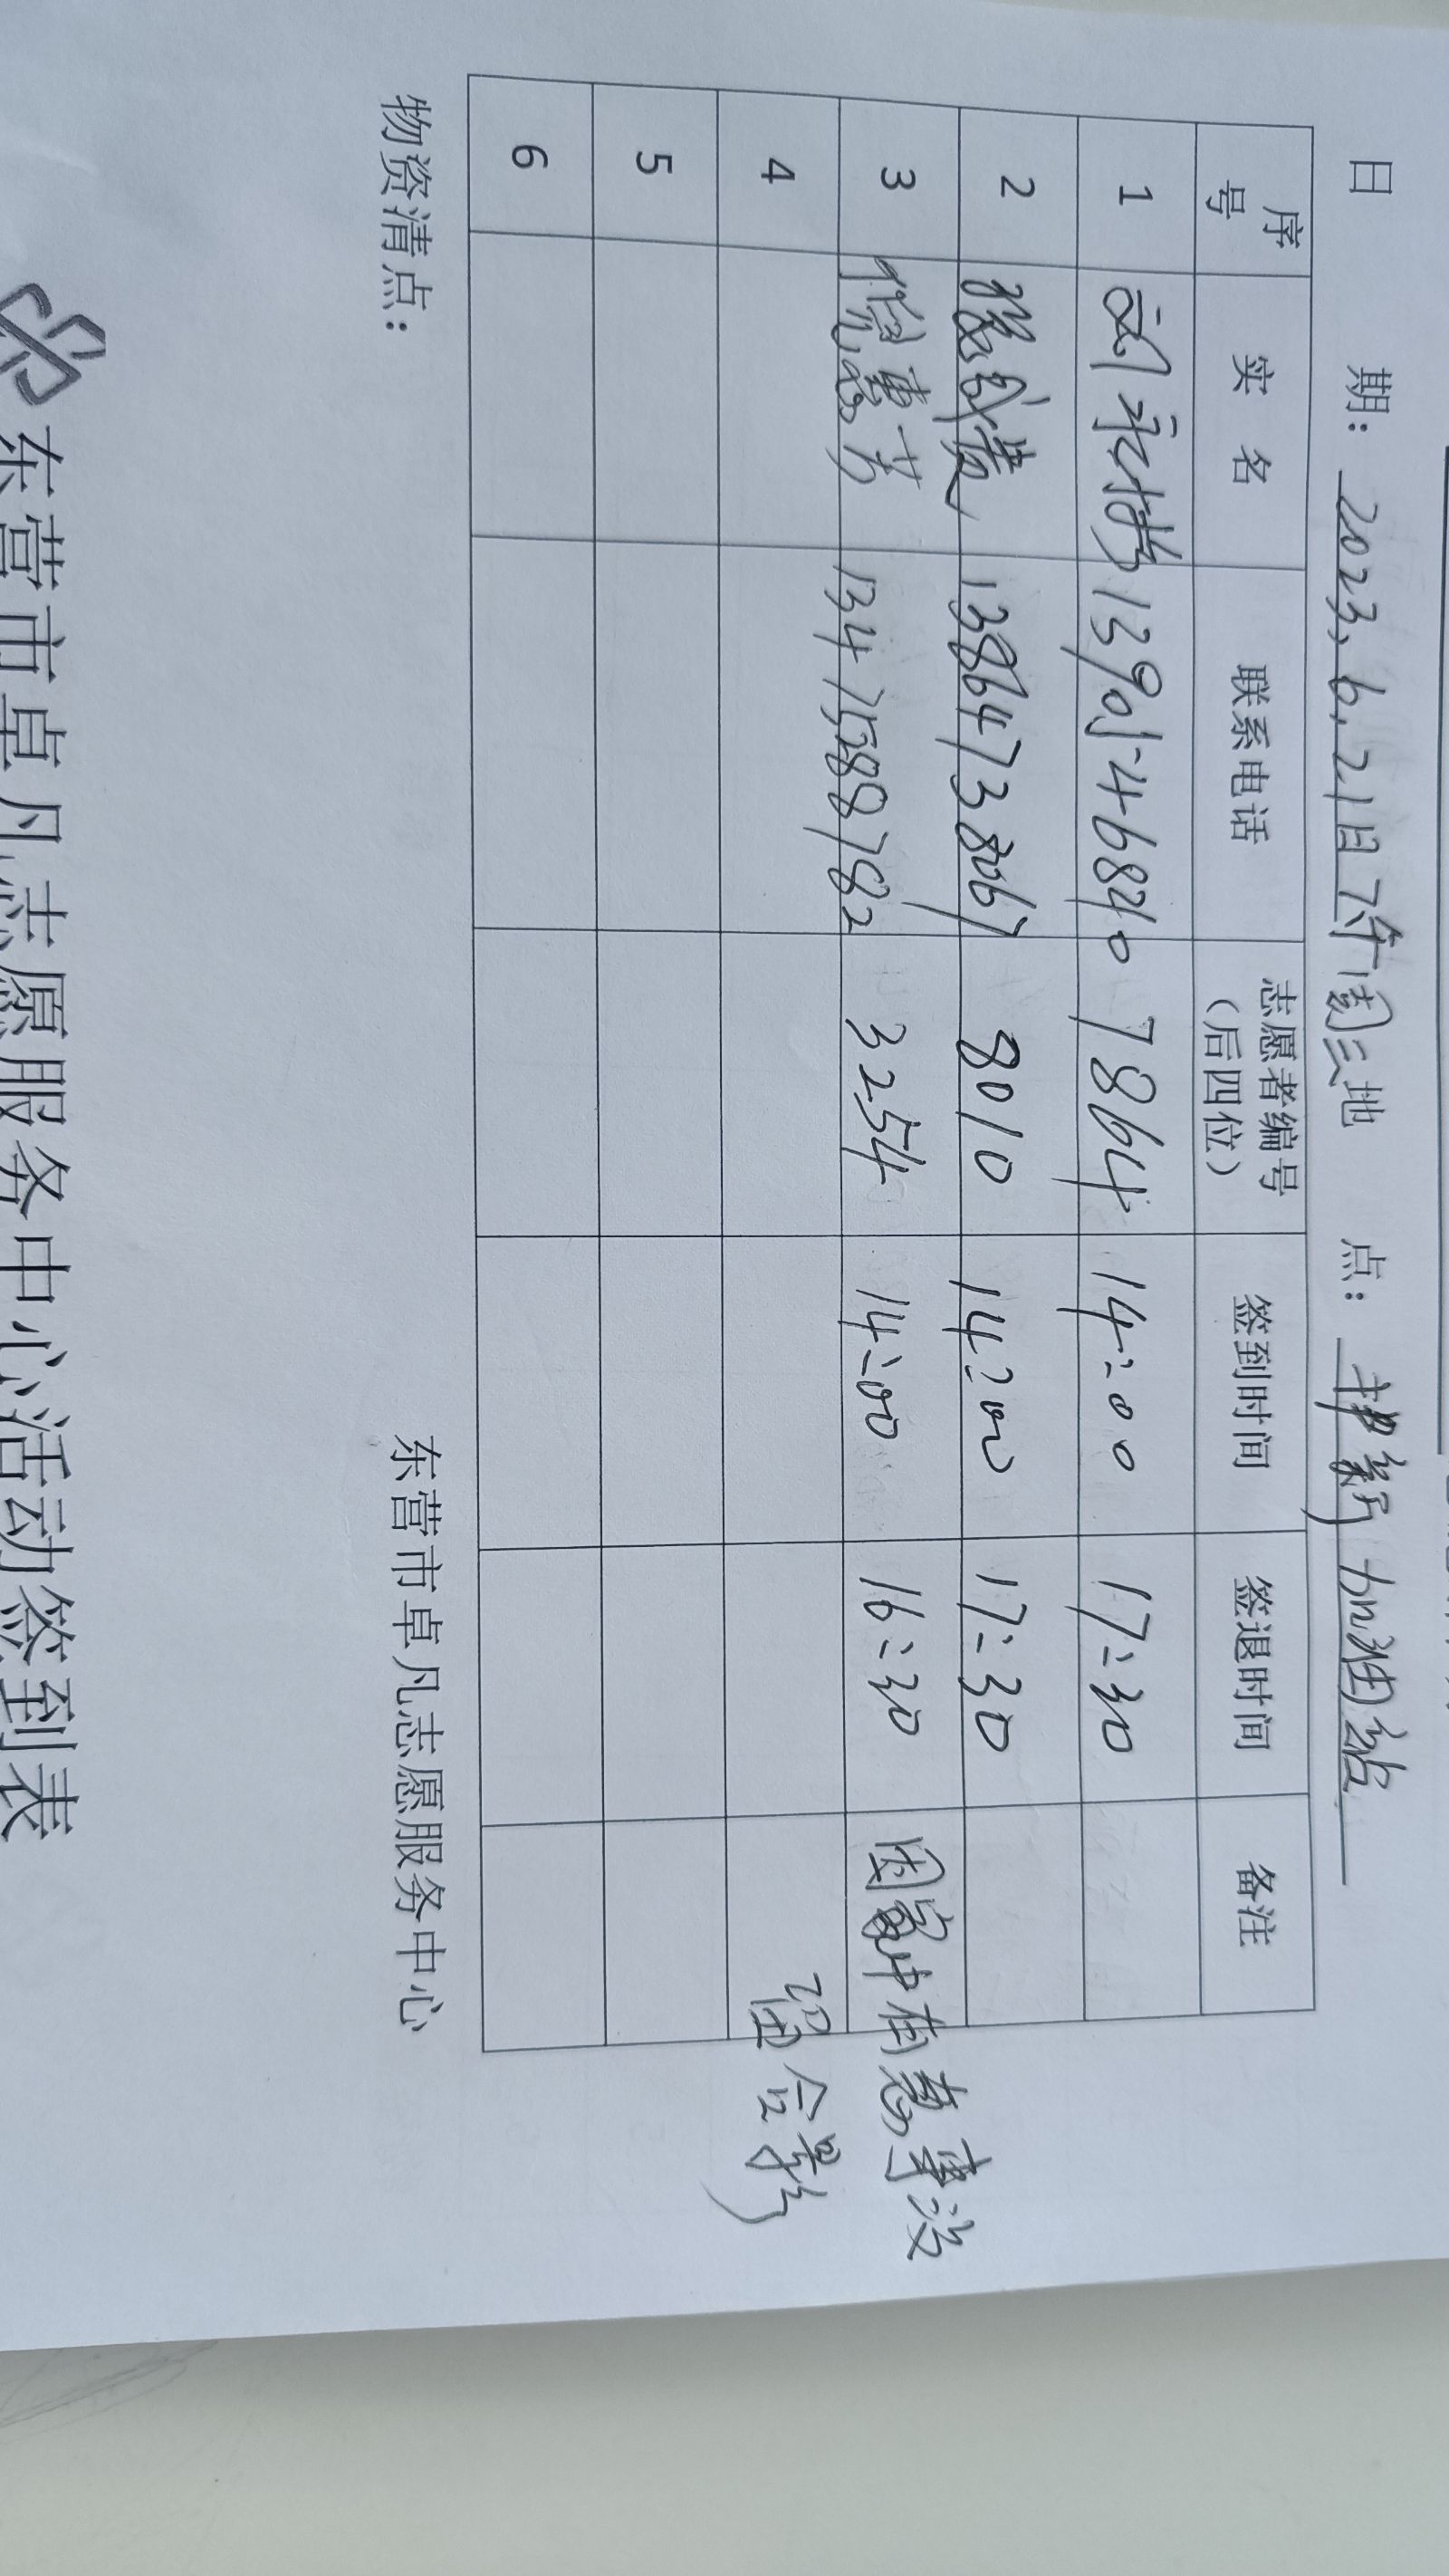 日 期：2023.6.21日下午周三 地 点：静新加油站
序号 实 名 联系电话 志愿者编号（后四位） 签到时间 签退时间 备注
1 刘永梅 7864 14:00 17:30
2 13864738067 8010 14:00 17:30
3 13475887182 3254 14:00 16:30 因家中有急事没
留合影
4
5
6
物资清点： 东营市卓凡志愿服务中心
东营市卓凡志愿服务中心活动签到表